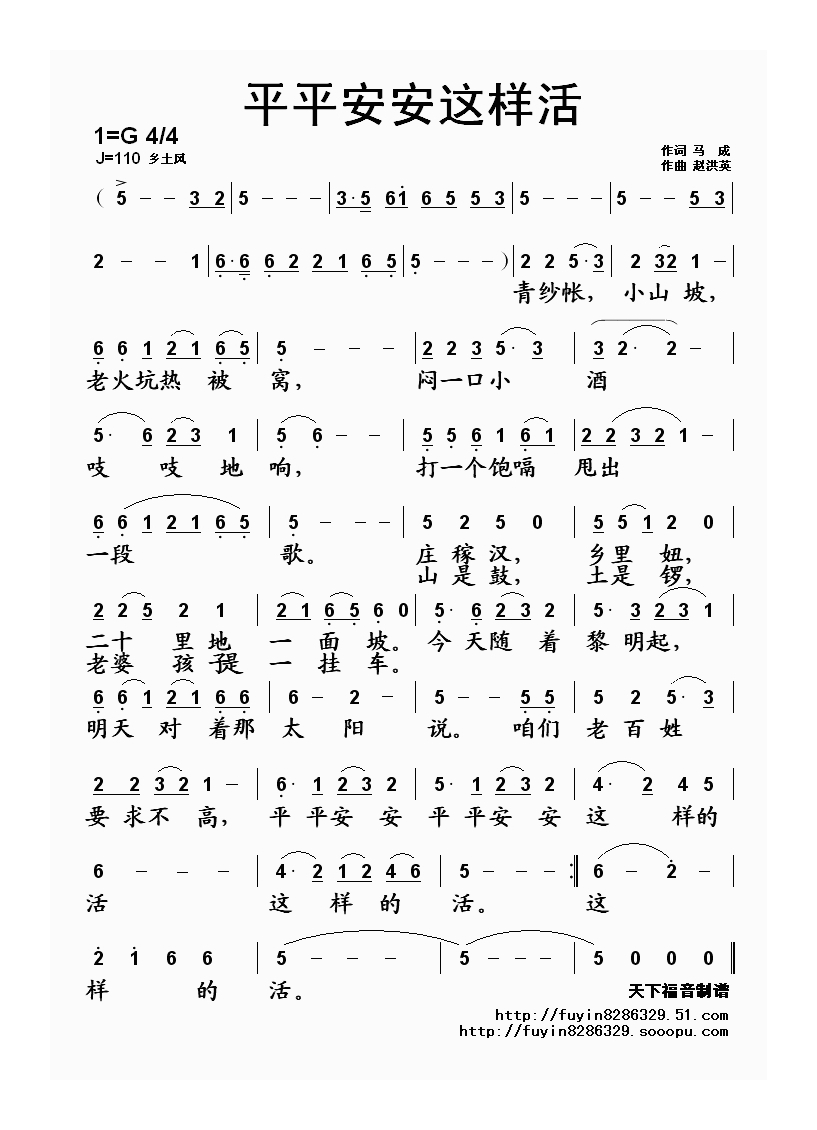 平平安安这样活
1=G 4/4
J=110 乡土风
作词 马 成
作曲 赵洪英
( 5 - - 3 2 | 5 - - - | 3·5 61 6 5 5 3 | 5 - - - | 5 - - 5 3 |
2 - - 1 | 6·6 6 2 2 1 6 5 | 5 - - - ) | 2 2 5·3 | 2 32 1 - |
青纱帐， 小山 坡，
6 6 1 2 1 6 5 | 5 - - - | 2 2 3 5· 3 | 3 2· 2 - |
老火坑热 被 窝， 闷一口小 酒
5· 6 2 3 1 | 5 6· - - | 5 5 6 1 6 1 | 2 2 3 2 1 - |
吱 吱 地 响， 打一个饱嗝 甩出
6 6 1 2 1 6 5 | 5 - - - | 5 2 5 0 | 5 5 1 2 0 |
一段 歌。 庄 稼 汉， 乡里 妞，
山 是 鼓， 土是 锣，
2 2 5 2 1 | 2 1 6 5 6 0 | 5· 6 2 3 2 | 5· 3 2 3 1 |
二十 里地 一 面 坡。 今 天随 着 黎 明起，
老婆 孩子是 一 挂 车。
6 6 1 2 1 6 6 | 6 - 2 - | 5 - - 5 5 | 5 2 5· 3 |
明天 对 着那 太 阳 说。 咱们 老 百 姓
2 2 3 2 1 - | 6· 1 2 3 2 | 5· 1 2 3 2 | 4· 2 4 5 |
要 求不 高， 平 平安 安 平 平安 安 这 样的
6 - - - | 4· 2 1 2 4 6 | 5 - - - :| 6 - 2 - |
活 这 样 的 活。 这
2 1 6 6 | 5 - - - | 5 - - - | 5 0 0 0 ||
样 的 活。
天下福音制谱
http://fuyin8286329.51.com
http://fuyin8286329.sooopu.com